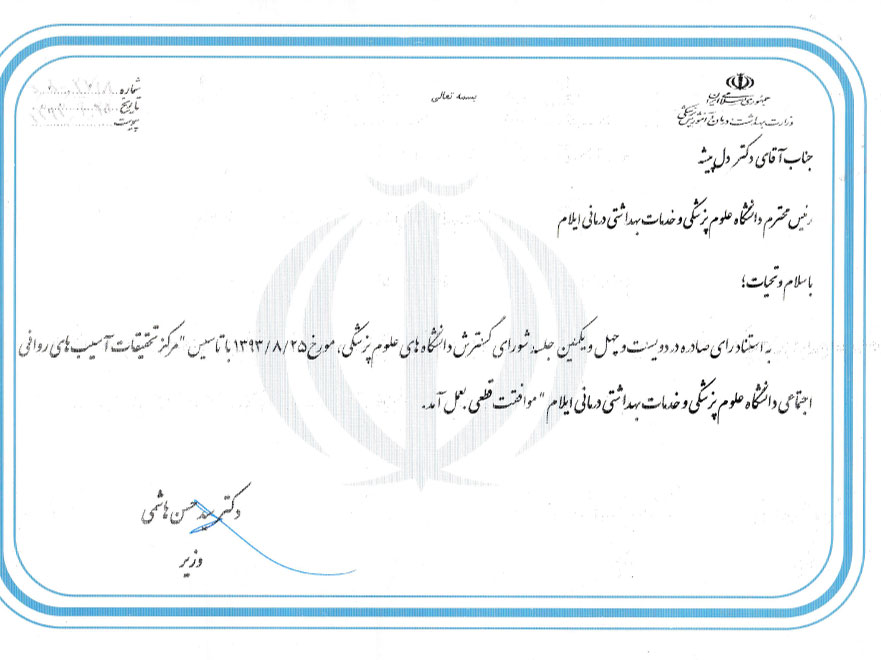 جمهوری اسلامی ایران
وزارت بهداشت، درمان و آموزش پزشکی
بسمه تعالی
شماره
تاریخ
پیوست
جناب آقای دکتر دل پیشه
رئیس محترم دانشگاه علوم پزشکی و خدمات بهداشتی درمانی ایلام
با سلام و تحیات؛
به استناد رای صادره در دویست و چهل و یکمین جلسه شورای گسترش دانشگاه های علوم پزشکی، مورخ ۱۳۹۳/۸/۲۵ با تاسیس "مرکز تحقیقات آسیب های روانی
اجتماعی دانشگاه علوم پزشکی و خدمات بهداشتی درمانی ایلام " موافقت قطعی بعمل آمد.
دکتر سید حسن هاشمی
وزیر